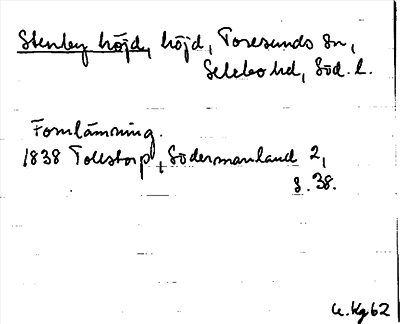 Stenby höjd, höjd, Toresunds sn,
Selebo hd, Söd. l.
Fornlämning.
1838 Tollstorp, Södermanland 2,
s. 38.
Kg 62